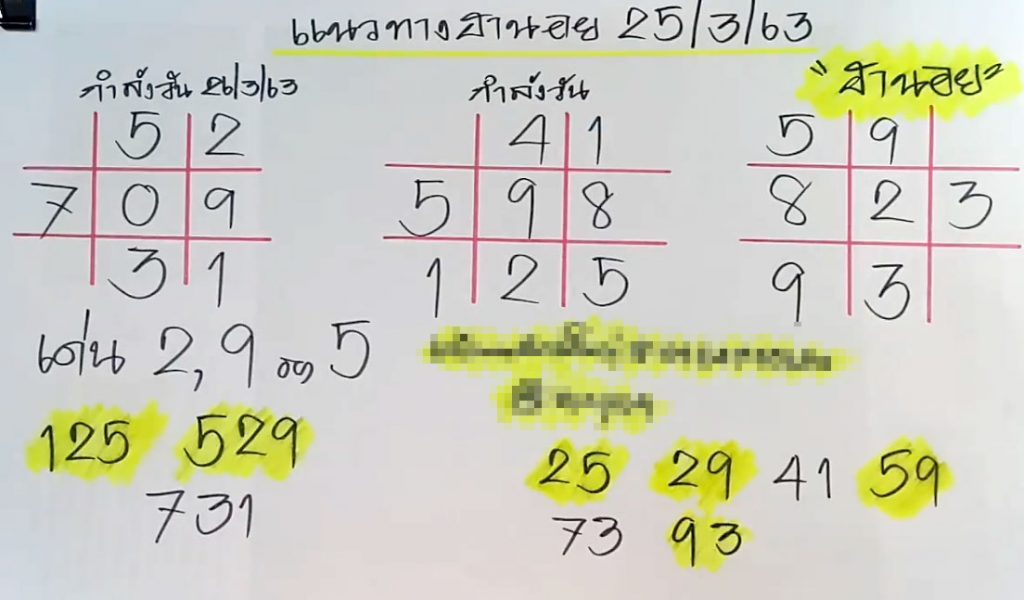 แนวทางฮานอย 25/3/63
กำลังวัน 26/3/63
5 2
7 0 9
3 1
กำลังวัน
4 1
5 9 8
1 2 5
"ฮานอย"
5 9
8 2 3
9 3
เด่น 2,9 รอง 5
125 529
731
25 29 41 59
73 93